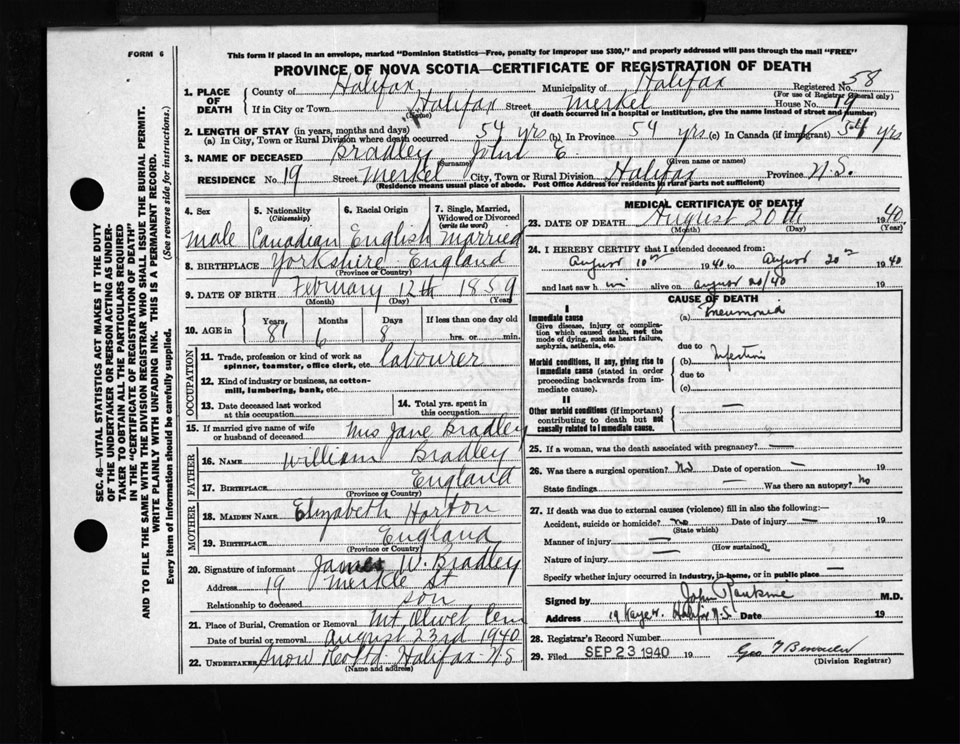 FORM 6
This form if placed in an envelope, marked "Dominion Statistics—Free, penalty for improper use $300," and properly addressed will pass through the mail "FREE"
PROVINCE OF NOVA SCOTIA—CERTIFICATE OF REGISTRATION OF DEATH
SEC. 46—VITAL STATISTICS ACT MAKES IT THE DUTY
OF THE UNDERTAKER OR PERSON ACTING AS UNDER-
TAKER TO OBTAIN ALL THE PARTICULARS REQUIRED
IN THE "CERTIFICATE OF REGISTRATION OF DEATH"
AND TO FILE THE SAME WITH THE DIVISION REGISTRAR WHO SHALL ISSUE THE BURIAL PERMIT.
WRITE PLAINLY WITH UNFADING INK. THIS IS A PERMANENT RECORD.
Every item of information should be carefully supplied. (See reverse side for instructions.)
1. PLACE OF DEATH County of Halifax Municipality of Halifax Registered No. 58
(For use of Registrar General only)
If in City or Town Halifax Street Merkel House No. 19
(Name) (If death occurred in a hospital or institution, give the name instead of street and number)
2. LENGTH OF STAY (in years, months and days)
a) In City, Town or Rural Division where death occurred 54 yrs (b) In Province 54 yrs (c) In Canada (if immigrant) 54 yrs
3. NAME OF DECEASED Bradley John E.
(Surname) (Given name or names)
RESIDENCE No. 19 Street Merkel City, Town or Rural Division Halifax Province N.S.
(Residence means usual place of abode. Post Office Address for residents in rural parts not sufficient)
4. Sex 5. Nationality (Citizenship) 6. Racial Origin 7. Single, Married, Widowed or Divorced (write the word)
Male Canadian English Married
8. BIRTHPLACE Yorkshire England
(Province or Country)
9. DATE OF BIRTH February 12th 1859
(Month) (Day) (Year)
10. AGE in Years Months Days If less than one day old
81 6 8 hrs. or min.
OCCUPATION
11. Trade, profession or kind of work as spinner, teamster, office clerk, etc. labourer
12. Kind of industry or business, as cotton-mill, lumbering, bank, etc.
13. Date deceased last worked at this occupation
14. Total yrs. spent in this occupation
15. If married give name of wife or husband of deceased Mrs Jane Bradley
FATHER
16. NAME William Bradley
17. BIRTHPLACE England
(Province or Country)
MOTHER
18. MAIDEN NAME Elizabeth Horton
19. BIRTHPLACE England
(Province or Country)
20. Signature of informant James W. Bradley
Address 19 Merkle St
Relationship to deceased son
21. Place of Burial, Cremation or Removal Mt. Olivet Cem
Date of burial or removal August 23rd 1940
22. UNDERTAKER Snow & Co Ltd. Halifax N.S
(Name and address)
MEDICAL CERTIFICATE OF DEATH
23. DATE OF DEATH August 20th 1940
(Month) (Day) (Year)
24. I HEREBY CERTIFY that I attended deceased from:
August 10 1940 to August 20 1940
and last saw him alive on August 20/40
CAUSE OF DEATH
I
Immediate cause
Give disease, injury or complication which caused death, not the mode of dying, such as heart failure, asphyxia, asthenia, etc.
(a) Pneumonia
due to
Morbid conditions, if any, giving rise to immediate cause (stated in order proceeding backwards from immediate cause).
(b)
due to
(c)
II
Other morbid conditions (if important) contributing to death but not causally related to immediate cause.
25. If a woman, was the death associated with pregnancy? —
26. Was there a surgical operation? No Date of operation — 19
State findings — Was there an autopsy? No
27. If death was due to external causes (violence) fill in also the following:—
Accident, suicide or homicide? No Date of injury — 19
(State which)
Manner of injury —
(How sustained)
Nature of injury —
Specify whether injury occurred in industry, in home, or in public place —
Signed by John Rankine M.D.
Address Halifax N.S. Date 19
28. Registrar's Record Number
29. Filed SEP 23 1940 19
(Division Registrar)